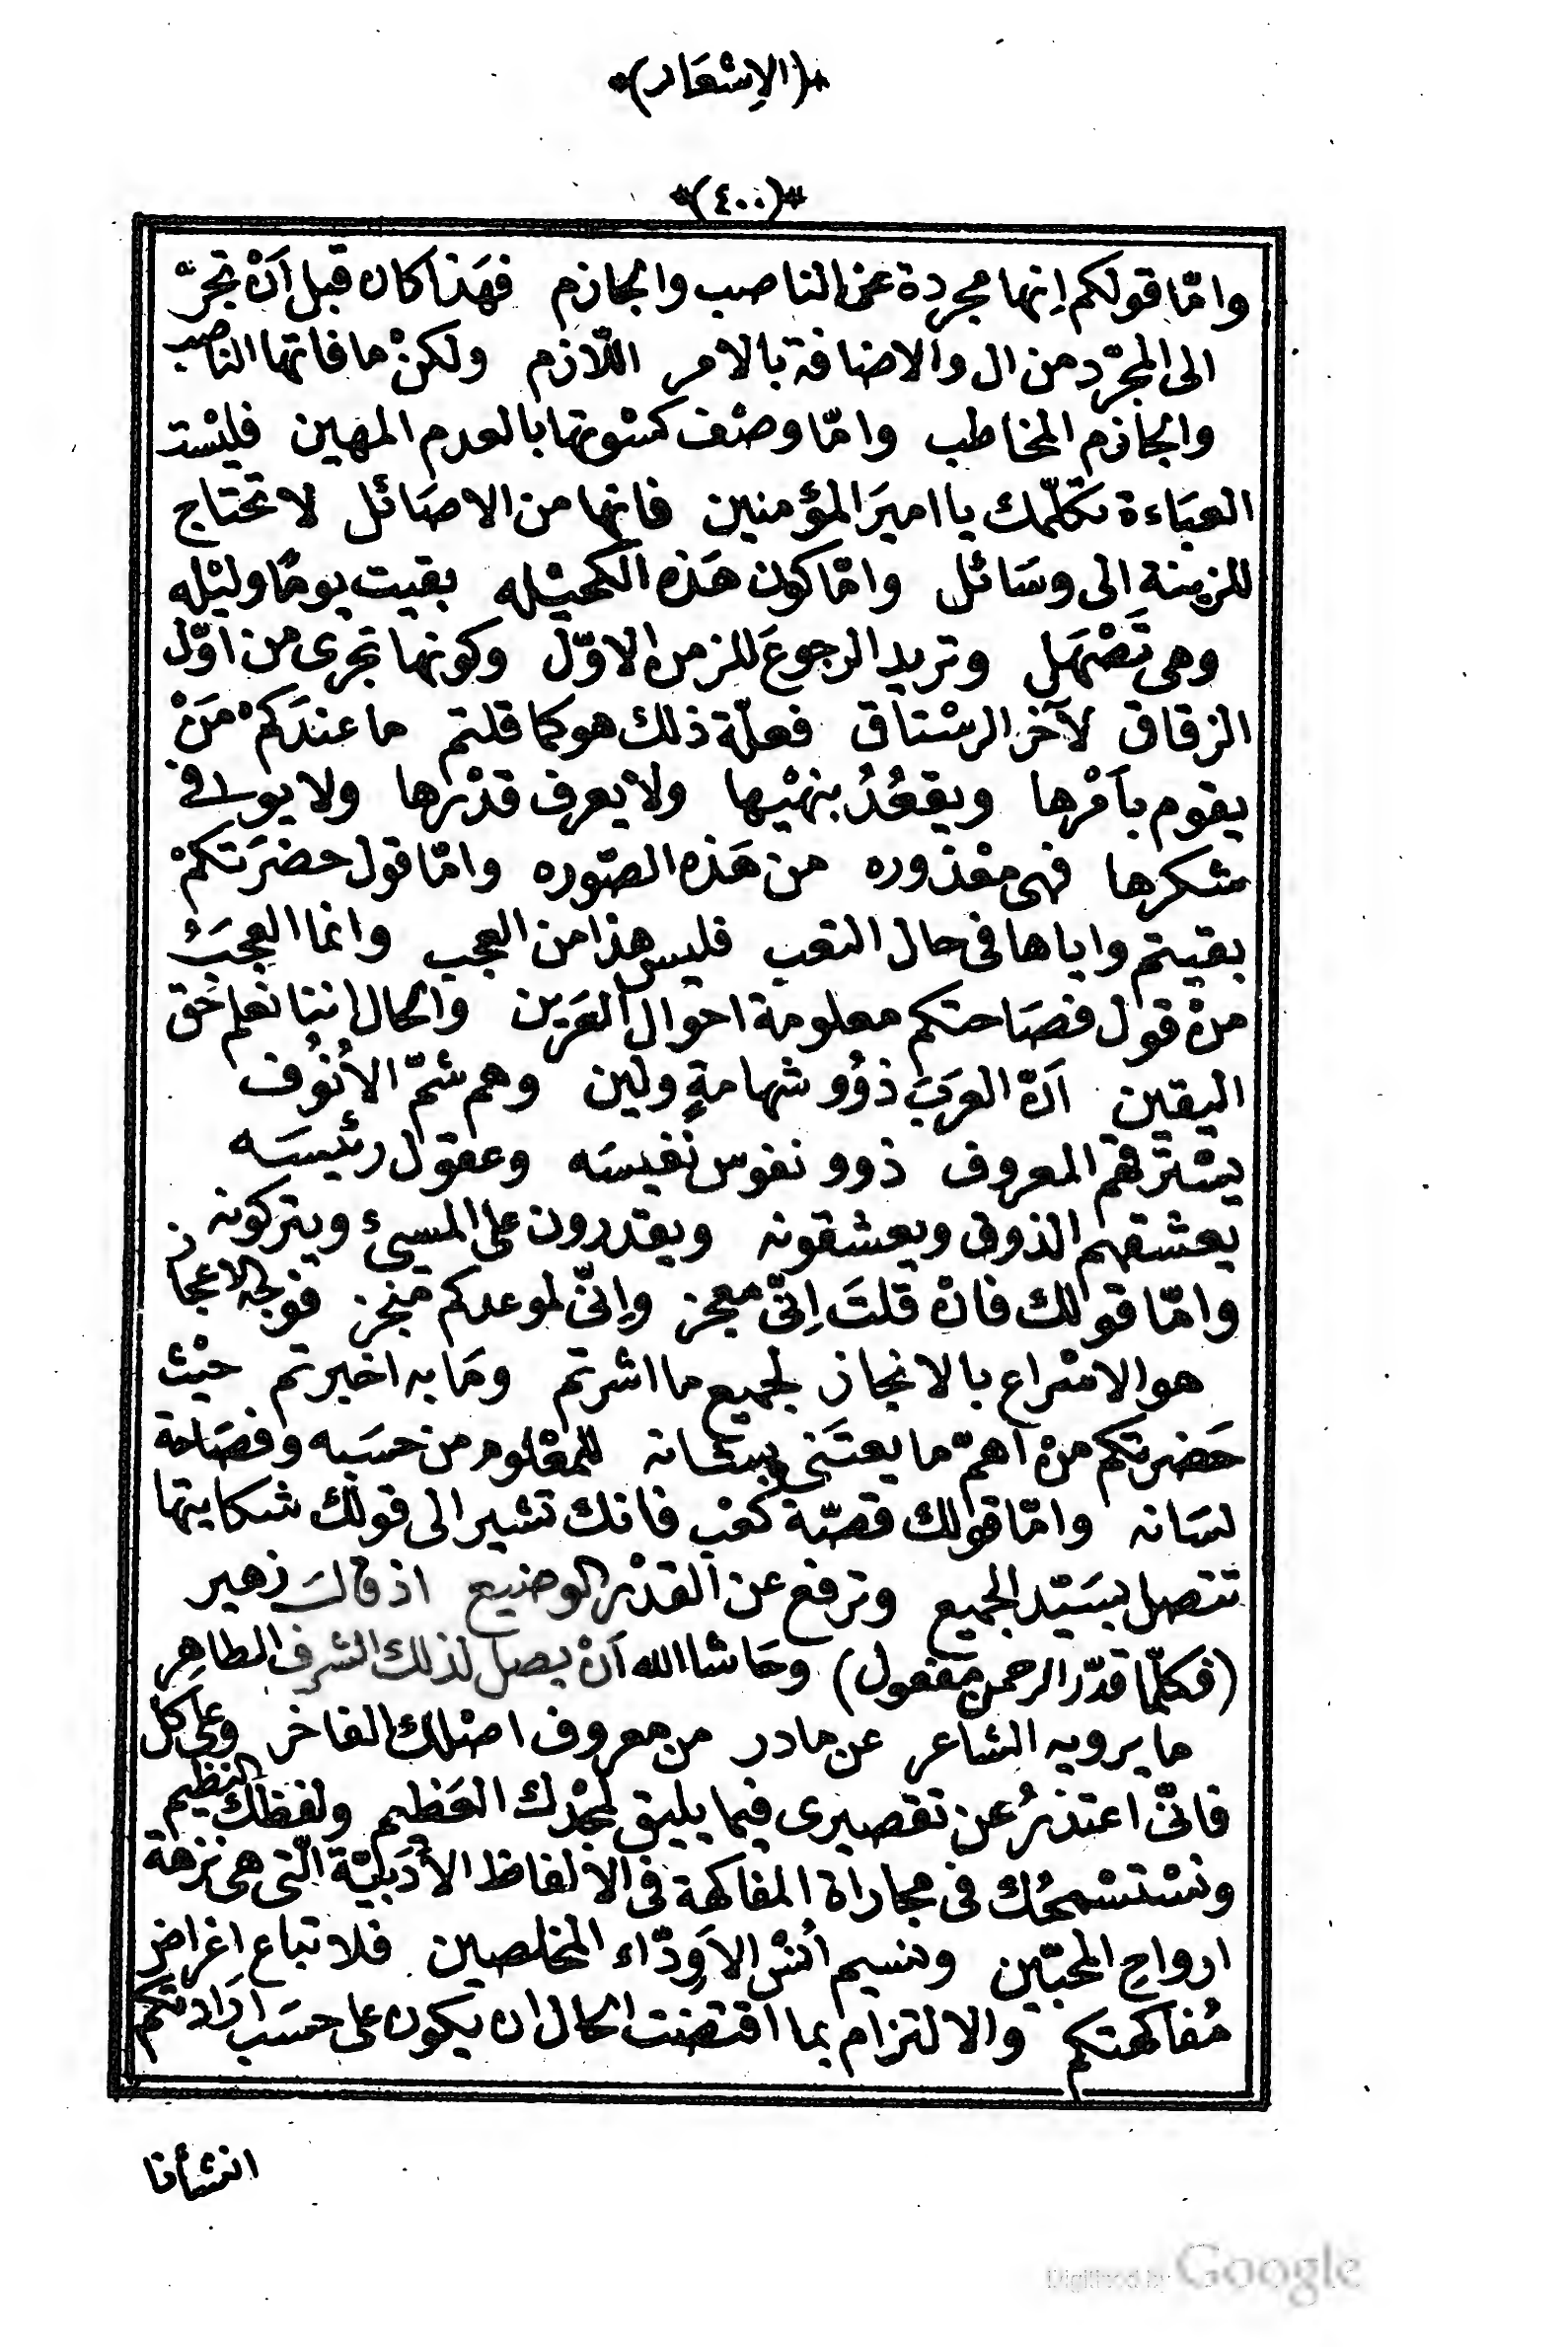 *(الإسْعَاد)*
*(٤٠٠)*
وامّا قولكم اِنها مجردة عن الناصب والجازم فهَذا كان قبل اَنْ تجرّ
الى المجرّد من ال والاضافة بالامر اللّازم ولكنْ ما فاتها الناصب
والجازم المخاطب وامّا وصْف كسْوتها بالعدم المهين فليْست
العبَاءة تكلّمك يا اميرَ المؤمنين فانها من الاصَائل لا تحتاج
للزينة الى وسَائل وامّا كون هَذه الكحيْله بقيت يومًا وليْله
وهى تَصْهَل وتريد الرجوعَ للزمن الاوّل وكونها تجرى من اوّل
الزقاق لآخر الرسْتاق فعلّة ذلك هو كما قلتم ما عندَكمْ مَنْ
يقوم بأمْرها ويقعُدُ بنهْيها ولا يعرف قدْرها ولا يوفى
شكرها فهى معْذوره من هَذه الصّوره وامّا قول حضرَتكمْ
بقيتم واياها فى حال التعب فليس هذا من العجب وانما العجَبُ
منْ قول فصَاحتكم معلومة احوال العرَبين والحال اننا نعلم حَق
اليقين اَنّ العرَبَ ذوُو شهامةٍ ولين وهم شمّ الأنُوف
يسْترقهم المعروف ذوو نفوس نَفيسَه وعقول رئيسَه
يعشقهم الذوق ويعشقونه ويقدرون على المسىء ويتركونه
وامّا قولك فانْ قلتَ اِنّى معجز واِنّى لموعدكم منجز فوَجه الاعجاز
هو الاسْراع بالانجاز لجميع ما اشرتم ومَا به اخبرتم حيْث
حَضرتكم منْ اهمّ ما يعتَنى بشانه للمعْلوم من حسَبه وفصَاحة
لسَانه وامّا قولك قصّة كعْب فانك تشير الى قولك شكايتها
تتصل بسَيّد الجميع وترفع عن القدْر الوضيع اذ قالَ زهير
(فكلّما قدّر الرحمن مفعول) وحَاشا الله اَنْ يصل لذلك الشرف الطاهِر
ما يرويه الشاعر عن مادر من معروف اصْلك الفاخر وعلى كل
فانّى اعتذرُ عن تقصيرى فيما يليق لمجْدك العَظيم ولفظك النظيم
ونسْتسْمحُك فى مجاراة المفاكهة فى الالفاظ الأدَبيّة الّتى هى نزهة
ارواح المحبّين ونسيم اُنسْ الاَودّاء المخلصين فلاتباع اغراض
مُفاكهتكم والالتزام بما اقتضت الحال ان يكون على حسَب ارَادتكم
انشأنا
Digitized by Google